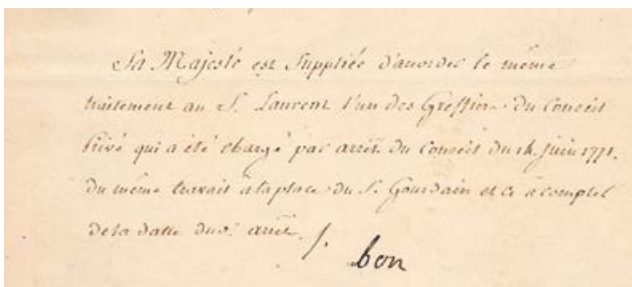 Sa Majesté est Suppliée d'acorder le même
traitement au S. Laurent l'un des Greffiers du Conseil
Privé qui a été chargé par arrêt du Conseil du 14 juin 1771.
du même travail à la place du S. Gourdain et ce à compter
de la datte dud. arrêt.
bon